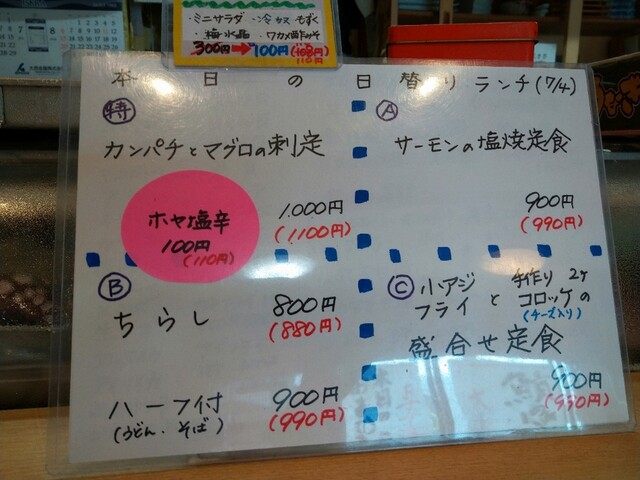 ・ミニサラダ ・冷奴 ・もずく
・梅水晶 ・ワカメ酢みそ
300円→100円(110円)
本日の日替りランチ(7/4)
特
カンパチとマグロの刺定
1.000円
(1100円)
ホヤ塩辛
100円
(110円)
A
サーモンの塩焼定食
900円
(990円)
B
ちらし
800円
(880円)
ハーフ付
(うどん・そば)
900円
(990円)
C
小アジフライと手作りコロッケ2ケの
(チーズ入り)
盛合せ定食
900円
(990円)